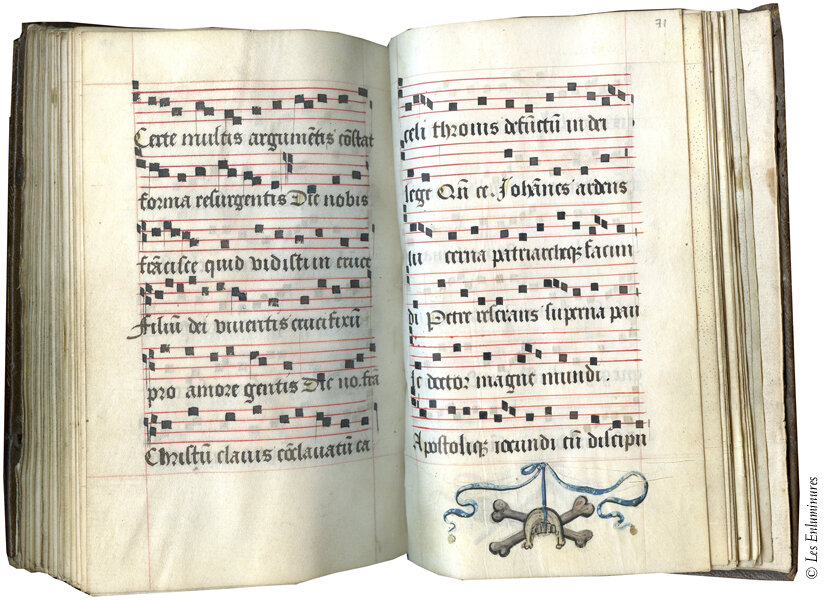 Certe multis argumẽtis cõstat
forma resurgentis Dic nobis
frãcisce quid vidisti in cruce
Filiũ dei viventis crucifixũ
pro amore gentis Dic no. frã
Christũ clavis cõclavatũ ca
71
celi thronis defũctũ in dei
lege Qñ ce. Johãnes ardens
lu cerna patriarcheq facun
di Petre reserans superna pau
le doctor magne mundi.
Apostoliq iocundi cũ discipu
© Les Enluminures